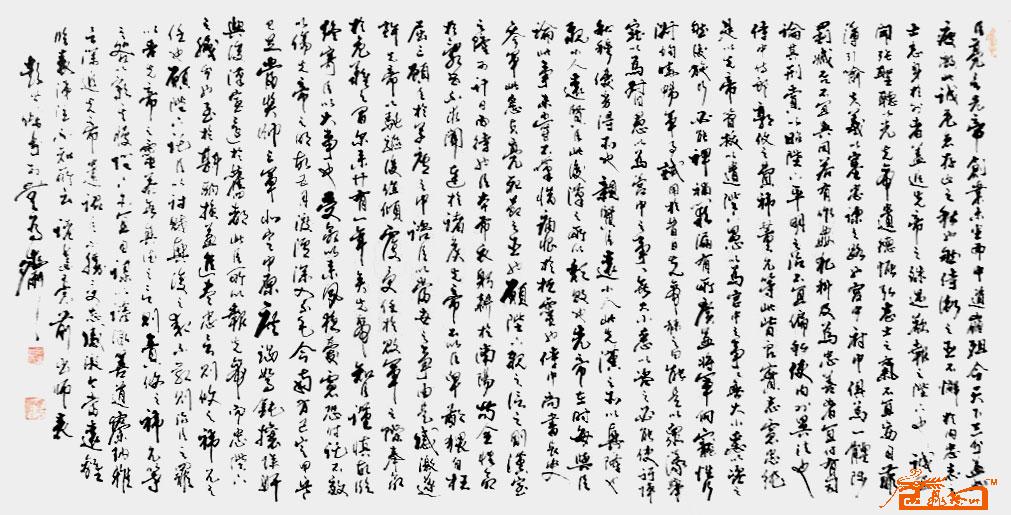 臣亮言先帝創業未半而中道崩殂今天下三分益州
疲弊此誠危急存亡之秋也然侍衛之臣不懈於內忠志
士忘身於外者蓋追先帝之殊遇欲報之陛下也誠宜
開張聖聽以光先帝遺德恢弘志士之氣不宜妄自菲
薄引喻失義以塞忠諫之路也宮中府中俱為一體陟
罰臧否不宜異同若有作姦犯科及為忠善者宜付有司
論其刑賞以昭陛下平明之治不宜偏私使內外異法也
侍中侍郎郭攸之費禕董允等此皆良實志慮忠純
是以先帝簡拔以遺陛下愚以為宮中之事事無大小悉以咨之
然後施行必能裨補闕漏有所廣益將軍向寵性行
淑均曉暢軍事試用於昔日先帝稱之曰能是以眾議舉
寵以為督愚以為營中之事事無大小悉以咨之必能使行陣
和穆優劣得所也親賢臣遠小人此先漢之所以興隆也
親小人遠賢臣此後漢之所以傾頹也先帝在時每與臣
論此事未嘗不嘆惜痛恨於桓靈也侍中尚書長史
參軍此悉貞亮死節之臣也願陛下親之信之則漢室
之隆可計日而待也臣本布衣躬耕於南陽苟全性命
於亂世不求聞達於諸侯先帝不以臣卑鄙猥自枉
屈三顧臣於草廬之中諮臣以當世之事由是感激遂
許先帝以驅馳後值傾覆受任於敗軍之際奉命
於危難之間爾來廿有一年矣先帝知臣謹慎故臨
終寄臣以大事也受命以來夙夜憂嘆恐付託不效
以傷先帝之明故五月渡瀘深入不毛今南方已定甲兵
已足當獎帥三軍北定中原庶竭駑鈍攘除姦
興復漢室還於舊都此臣所以報先帝而忠陛下
之職分也至於斟酌損益進盡忠言則攸之禕允之
任也願陛下託臣以討賊興復之效不效則治臣之罪
以告先帝之靈若無興德之言則責攸之禕允等
之咎以彰其慢陛下亦宜自課以諮諏善道察納雅
言深追先帝遺詔臣不勝受恩感激今當遠離
臨表涕泣不知所云 諸葛亮前出師表